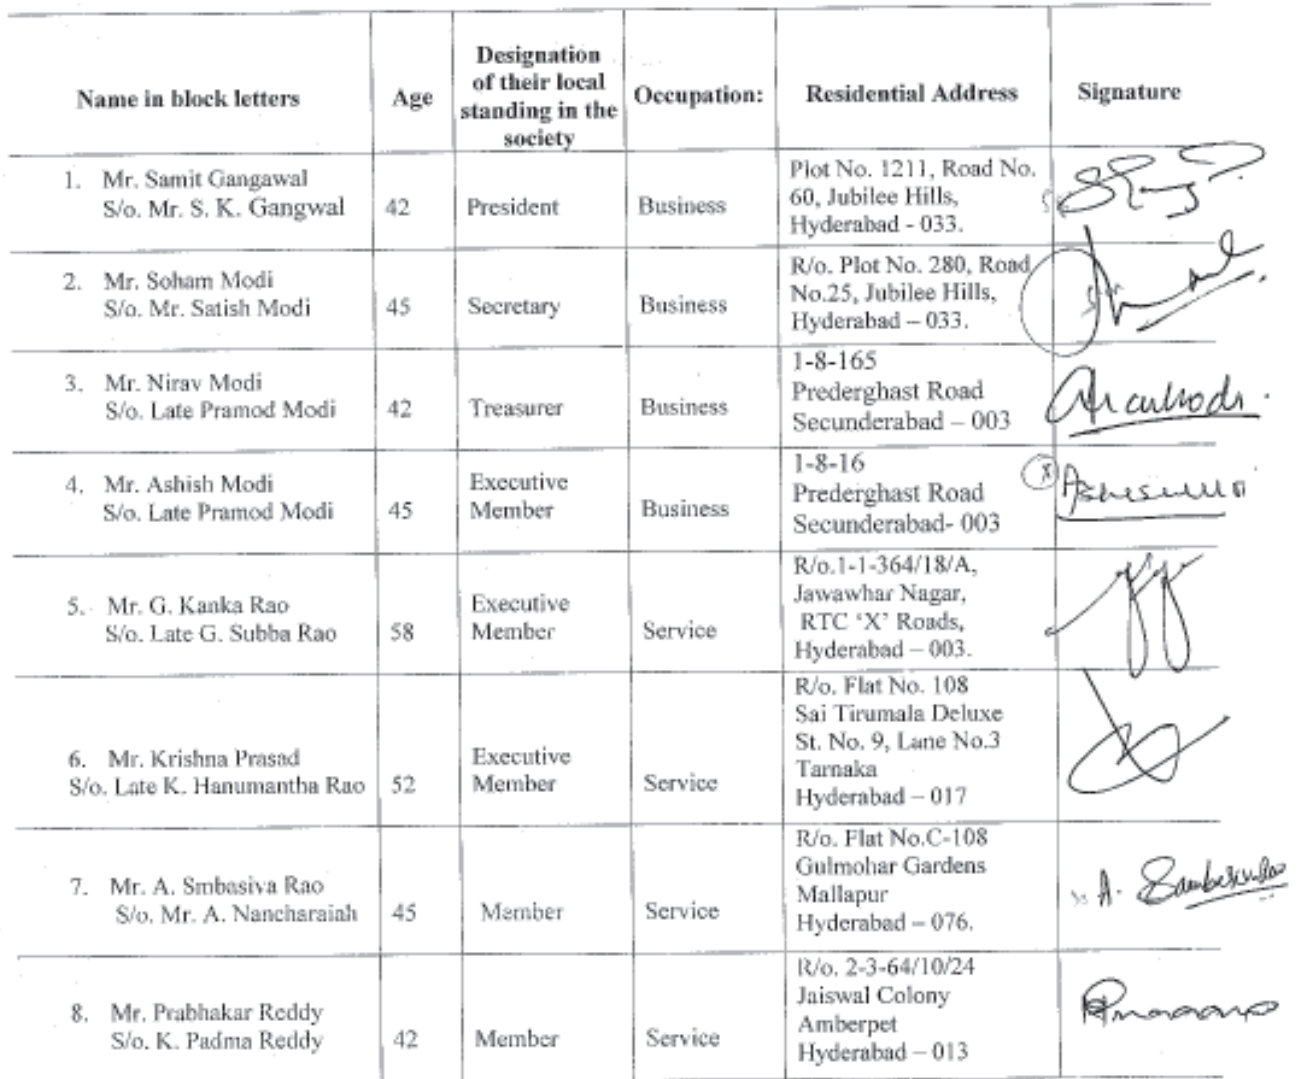 Name in block letters
Age
Designation
of their local
standing in the
society
Occupation:
Residential Address
Signature
1. Mr. Samit Gangawal
S/o. Mr. S. K. Gangwal
42
President
Business
Plot No. 1211, Road No.
60, Jubilee Hills,
Hyderabad - 033.
2. Mr. Soham Modi
S/o. Mr. Satish Modi
45
Secretary
Business
R/o. Plot No. 280, Road
No.25, Jubilee Hills,
Hyderabad – 033.
3. Mr. Nirav Modi
S/o. Late Pramod Modi
42
Treasurer
Business
1-8-165
Prederghast Road
Secunderabad – 003
4. Mr. Ashish Modi
S/o. Late Pramod Modi
45
Executive
Member
Business
1-8-16
Prederghast Road
Secunderabad- 003
X
5. Mr. G. Kanka Rao
S/o. Late G. Subba Rao
58
Executive
Member
Service
R/o.1-1-364/18/A,
Jawawhar Nagar,
RTC ‘X’ Roads,
Hyderabad – 003.
6. Mr. Krishna Prasad
S/o. Late K. Hanumantha Rao
52
Executive
Member
Service
R/o. Flat No. 108
Sai Tirumala Deluxe
St. No. 9, Lane No.3
Tarnaka
Hyderabad – 017
7. Mr. A. Smbasiva Rao
S/o. Mr. A. Nancharaiah
45
Member
Service
R/o. Flat No.C-108
Gulmohar Gardens
Mallapur
Hyderabad – 076.
A.
8. Mr. Prabhakar Reddy
S/o. K. Padma Reddy
42
Member
Service
R/o. 2-3-64/10/24
Jaiswal Colony
Amberpet
Hyderabad – 013